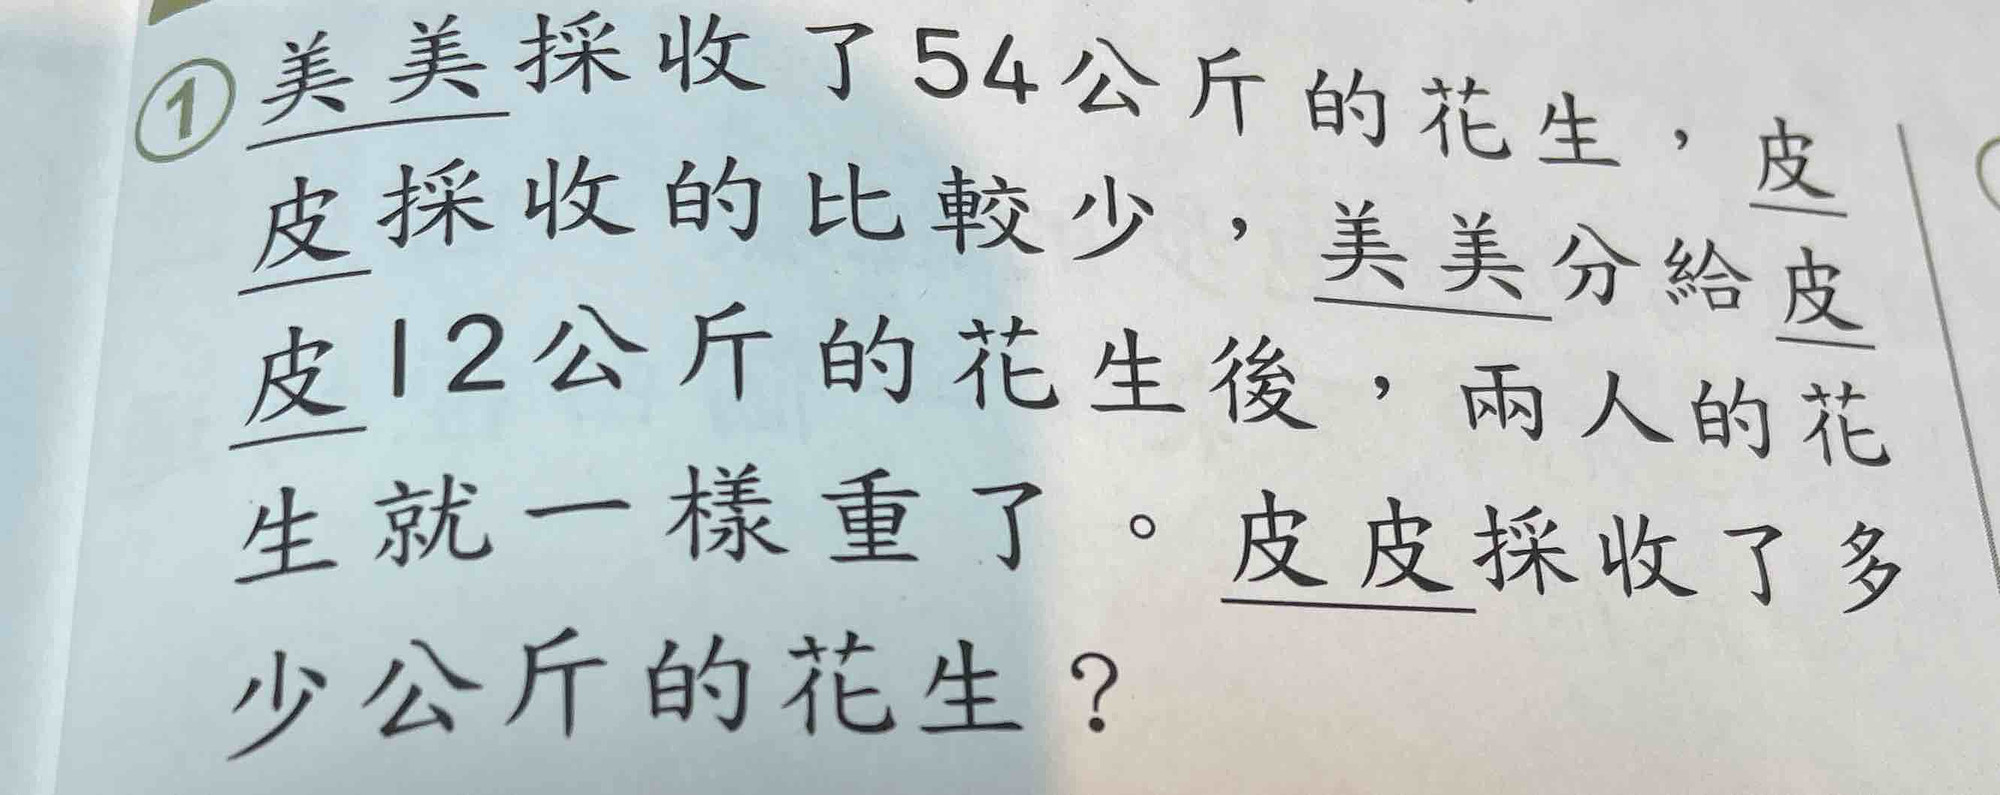 ① 美美採收了54公斤的花生，皮
皮採收的比較少，美美分給皮
皮12公斤的花生後，兩人的花
生就一樣重了。皮皮採收了多
少公斤的花生？